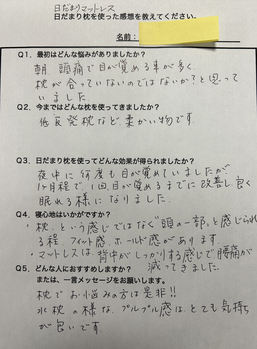 日だまりマットレス
日だまり枕を使った感想を教えてください。
名前：
Q1、最初はどんな悩みがありましたか？
朝、頭痛で目が覚める事が多く
枕が合っていないのではないか？と思って
いました
Q2、今まではどんな枕を使ってきましたか？
低反発枕など、柔かい物です。
Q3、日だまり枕を使ってどんな効果が得られましたか？
夜中に何度も目が覚めていましたが
1ヶ月程で、1回目が覚めるまでに改善し良く
眠れる様になりました。
Q4、寝心地はいかがですか？
"枕"という感じではなく"頭の一部"と感じられ
る程、フィット感、ホールド感があります
マットレスは、背中がしっかりする感じで腰痛が
減ってきました。
Q5、どんな人におすすめしますか？
または、一言メッセージをお願いします。
枕でお悩みの方は是非!!
水枕の様な、プルプル感は、とても気持
が良いです